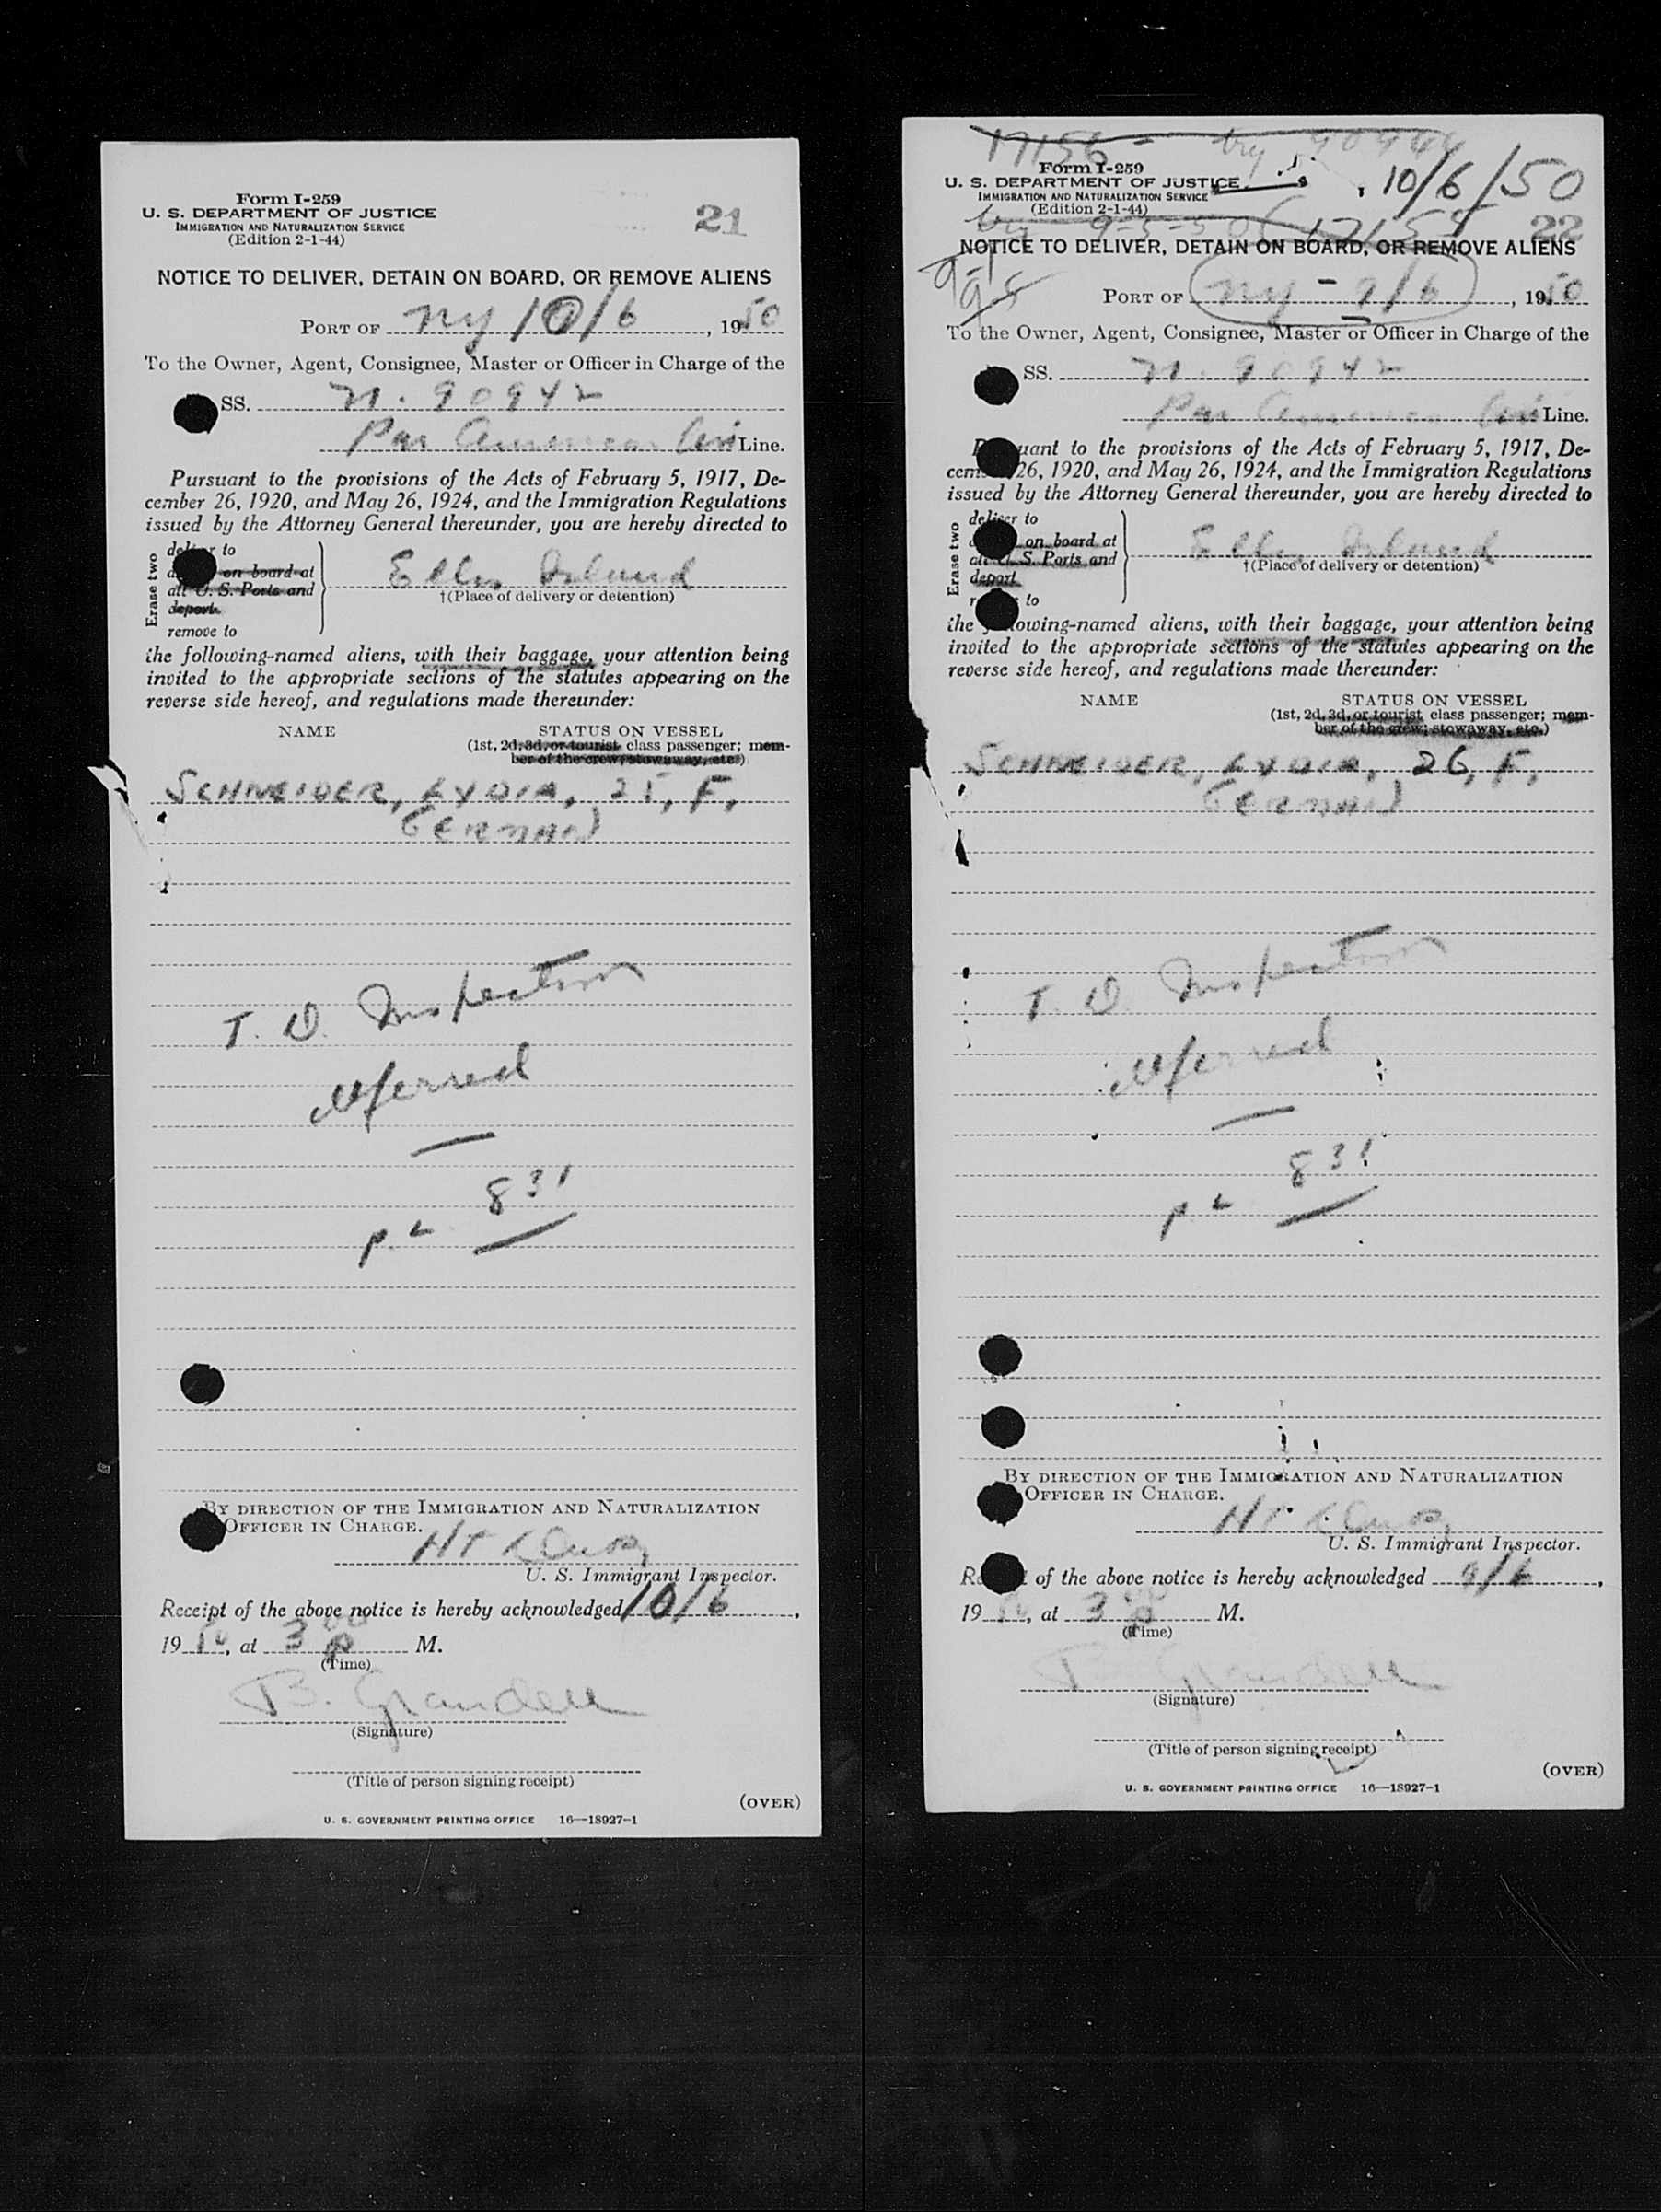 Form I-259
U. S. DEPARTMENT OF JUSTICE
IMMIGRATION AND NATURALIZATION SERVICE
(Edition 2-1-44)
21
NOTICE TO DELIVER, DETAIN ON BOARD, OR REMOVE ALIENS
PORT OF NY 10/6, 1950
To the Owner, Agent, Consignee, Master or Officer in Charge of the
SS. N. 90942
Pan American Air Line.
Pursuant to the provisions of the Acts of February 5, 1917, De-
cember 26, 1920, and May 26, 1924, and the Immigration Regulations
issued by the Attorney General thereunder, you are hereby directed to
Erase two
deliver to
on board at
all U. S. Ports and
deport
remove to
Ellis Island
†(Place of delivery or detention)
the following-named aliens, with their baggage, your attention being
invited to the appropriate sections of the statutes appearing on the
reverse side hereof, and regulations made thereunder:
NAME STATUS ON VESSEL
(1st, 2d, 3d, or tourist class passenger; mem-
ber of the crew; stowaway, etc.)
SCHNEIDER, LYDIA, 25, F,
GERMAN
T. D. Inspection
deferred
831
p. 2
BY DIRECTION OF THE IMMIGRATION AND NATURALIZATION
OFFICER IN CHARGE.
U. S. Immigrant Inspector.
Receipt of the above notice is hereby acknowledged 10/6,
1950, at 3 00 P M.
(Time)
B. Grandell
(Signature)
(Title of person signing receipt)
(OVER)
U. S. GOVERNMENT PRINTING OFFICE 16—18927-1
17156 - NY 90944
Form I-259
U. S. DEPARTMENT OF JUSTICE
10/6/50
IMMIGRATION AND NATURALIZATION SERVICE
(Edition 2-1-44)
22
NOTICE TO DELIVER, DETAIN ON BOARD, OR REMOVE ALIENS
PORT OF NY - 9/6, 1950
To the Owner, Agent, Consignee, Master or Officer in Charge of the
SS. N. 90942
Pan American Air Line.
uant to the provisions of the Acts of February 5, 1917, De-
cem 26, 1920, and May 26, 1924, and the Immigration Regulations
issued by the Attorney General thereunder, you are hereby directed to
Erase two
deliver to
on board at
all U. S. Ports and
deport
to
Ellis Island
†(Place of delivery or detention)
the following-named aliens, with their baggage, your attention being
invited to the appropriate sections of the statutes appearing on the
reverse side hereof, and regulations made thereunder:
NAME STATUS ON VESSEL
(1st, 2d, 3d, or tourist class passenger; mem-
ber of the crew; stowaway, etc.)
SCHNEIDER, LYDIA, 26, F,
GERMAN
T. D. Inspection
deferred
831
p. 2
BY DIRECTION OF THE IMMIGRATION AND NATURALIZATION
OFFICER IN CHARGE.
U. S. Immigrant Inspector.
of the above notice is hereby acknowledged 9/6,
1950, at 3 00 P M.
(Time)
B. Grandell
(Signature)
(Title of person signing receipt)
(OVER)
U. S. GOVERNMENT PRINTING OFFICE 16—18927-1